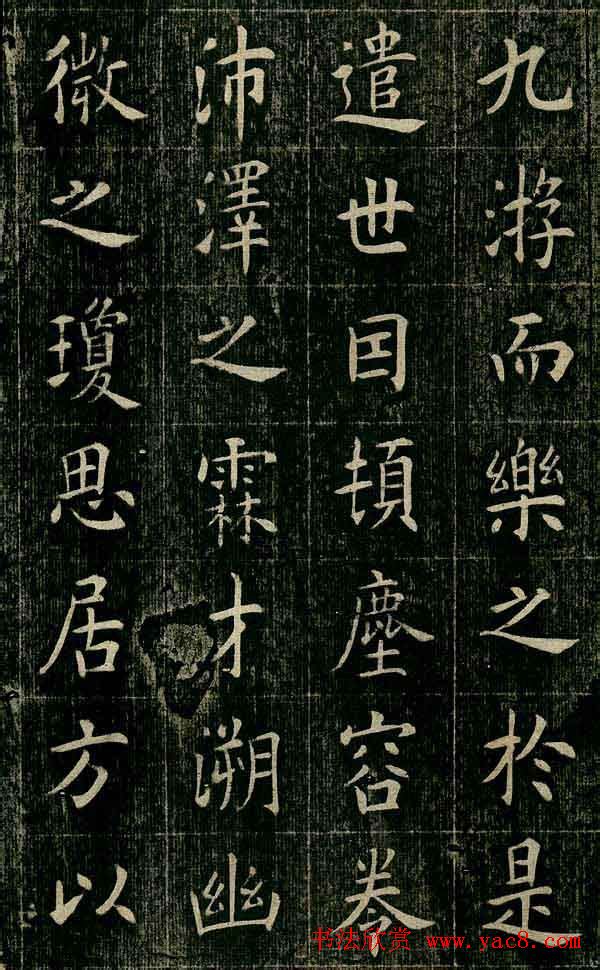 九游而樂之於是
遣世囙頓塵容卷
沛澤之霖才溯幽
微之瓊思居方以
书法欣赏 www.yac8.com